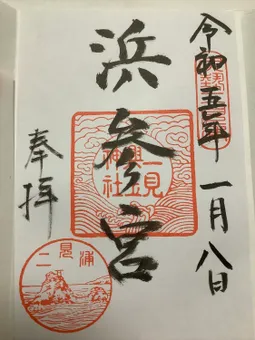 令和五年一月八日
浜参宮
奉拝
二見
興玉
神社
二見浦